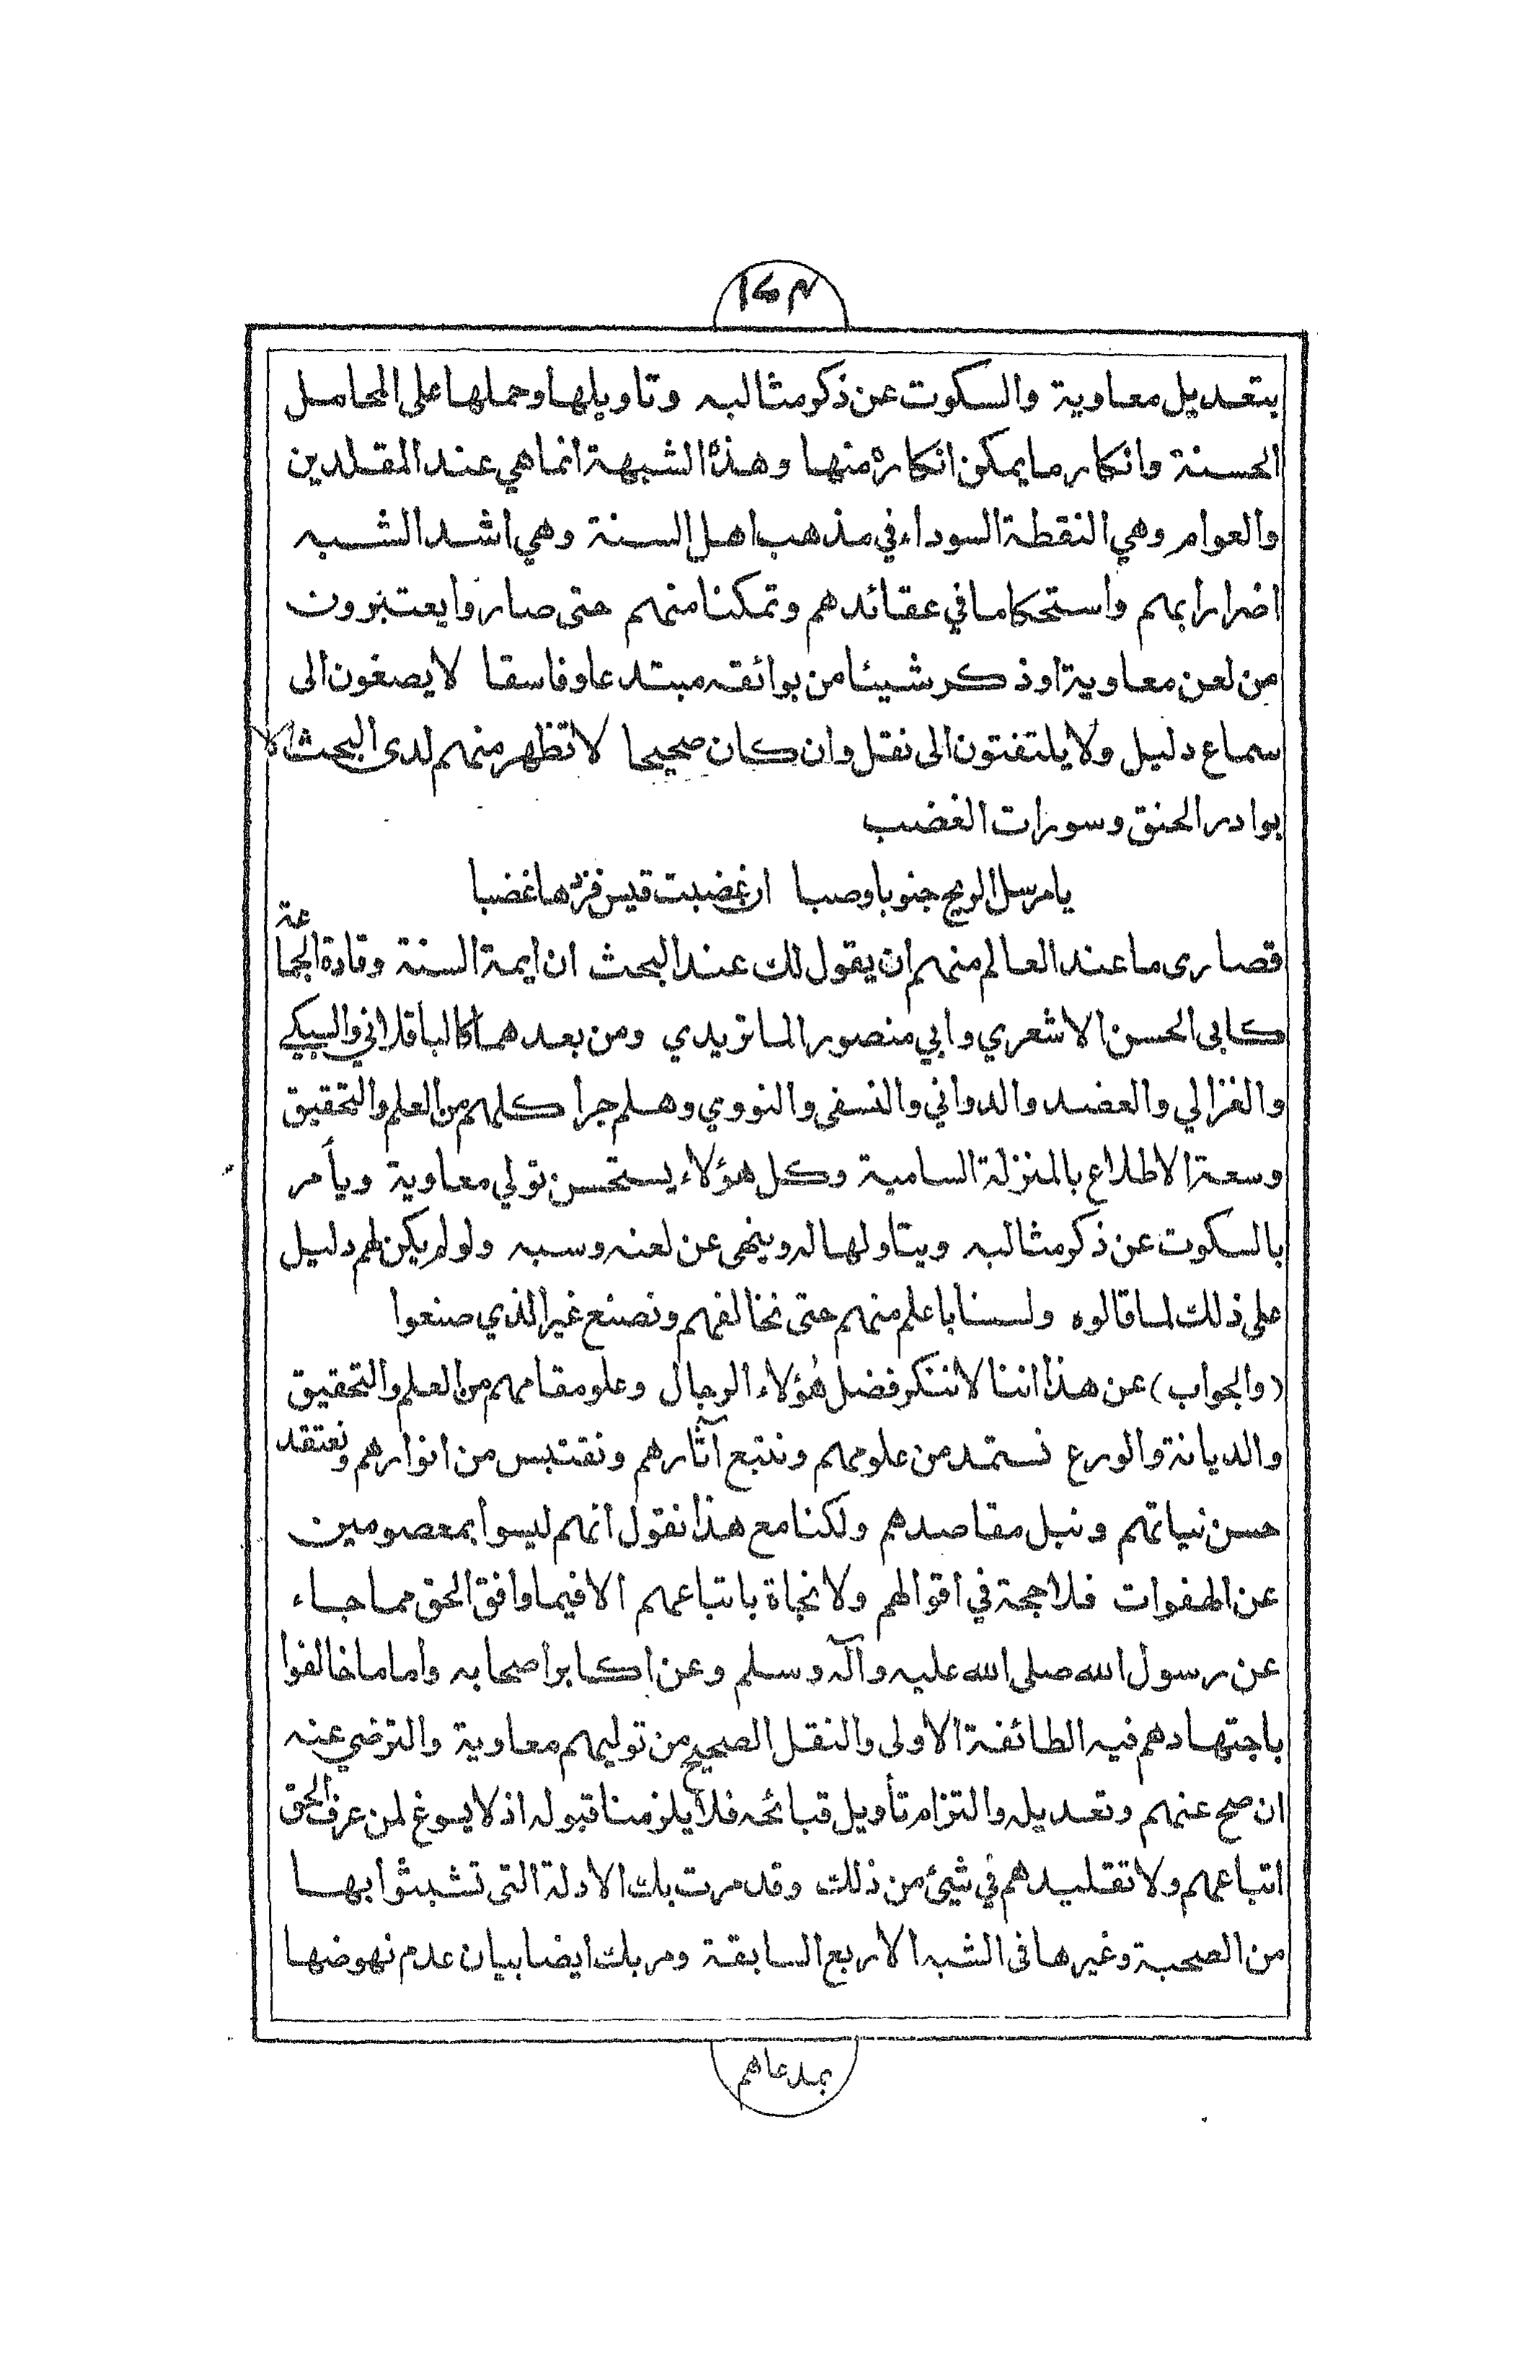 ١٤٣
بتعديل معاوية والسكوت عن ذكر مثالبه وتاويلها وحملها على المحامل
الحسنة وانكار ما يمكن انكاره منها وهذه الشبهة انما هي عند المقلدين
والعوام وهي النقطة السوداء في مذهب اهل السنة وهي اشد الشبه
اضرارا بهم واستحكاما في عقائدهم وتمكنا منهم حتى صاروا يعتبرون
من لعن معاوية او ذكر شيئا من بوائقه مبتدعا وفاسقا لا يصغون الى
سماع دليل ولا يلتفتون الى نقل وان كان صحيحا لا تظهر منهم لدى البحث الا
بوادر الحنق وسورات الغضب
يا مرسل الريح جنوبا وصبا ان غضبت قيس فزدها غضبا
قصارى ما عند العالم منهم ان يقول لك عند البحث ان ايمة السنة وقادة الجماعة
كابى الحسن الاشعري وابي منصور الماتريدي ومن بعدهما كالباقلاني والسبكي
والغزالي والعضد والدواني والنسفى والنووي وهلم جرا كلهم من العلم والتحقيق
وسعة الاطلاع بالمنزلة السامية وكل هؤلاء يستحسن تولي معاوية ويأمر
بالسكوت عن ذكر مثالبه ويتاولها له وينهى عن لعنه وسبه ولو لم يكن لهم دليل
على ذلك لما قالوه ولسنا باعلم منهم حتى نخالفهم ونصنع غير الذي صنعوا
(والجواب) عن هذا اننا لا ننكر فضل هؤلاء الرجال وعلو مقامهم من العلم والتحقيق
والديانة والورع نستمد من علومهم ونتبع آثارهم ونقتبس من انوارهم ونعتقد
حسن نياتهم ونبل مقاصدهم ولكنا مع هذا نقول انهم ليسوا بمعصومين
عن الهفوات فلا حجة في اقوالهم ولا نجاة باتباعهم الا فيما وافق الحق مما جاء
عن رسول الله صلى الله عليه وآله وسلم وعن اكابر اصحابه واما ما خالفوا
باجتهادهم فيه الطائفة الاولى والنقل الصحيح من توليهم معاوية والترضي عنه
ان صح عنهم وتعديله والتزام تأويل قبائحه فلا يلزمنا قبوله اذ لا يسوغ لمن عرف الحق
اتباعهم ولا تقليدهم في شيئ من ذلك وقد مرت بك الادلة التى تشبثوا بها
من الصحبة وغيرها فى الشبه الاربع السابقة ومر بك ايضا بيان عدم نهوضها
بمدعاهم